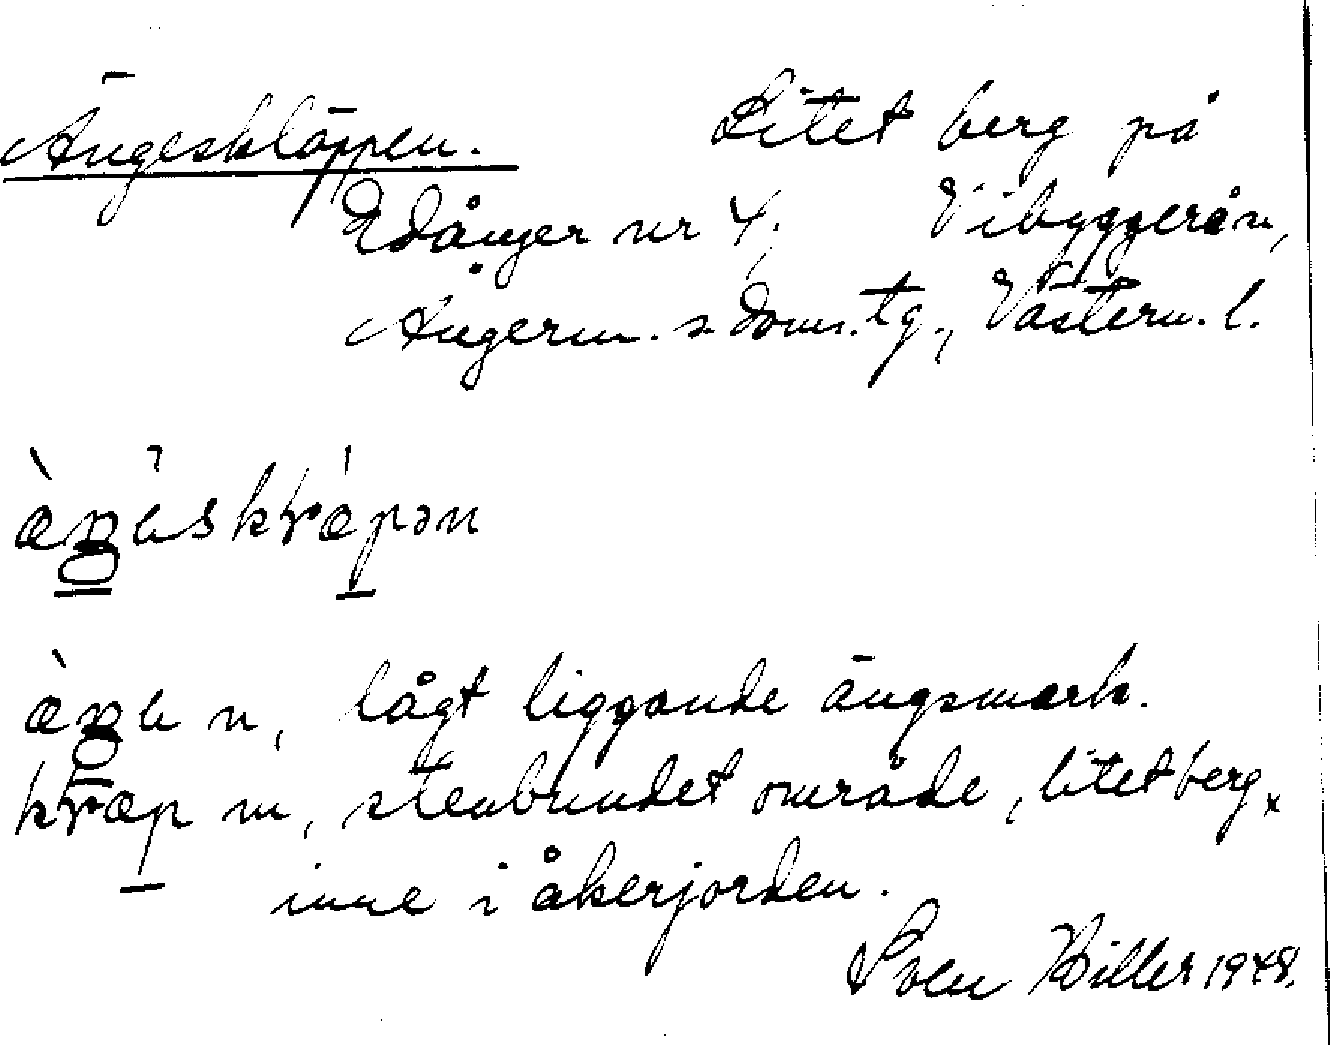 Ängeskläppen. Litet berg på
Edånger nr 4, Vibyggerån,
Ångerm. s. doms.tg., Västern. l.
æ̀ŋesklæpən
æ̀ŋe n, lågt liggande ängsmark.
klæp m, stenbundet område, litet berg
inne i åkerjorden.
Sven Hiller 1948.